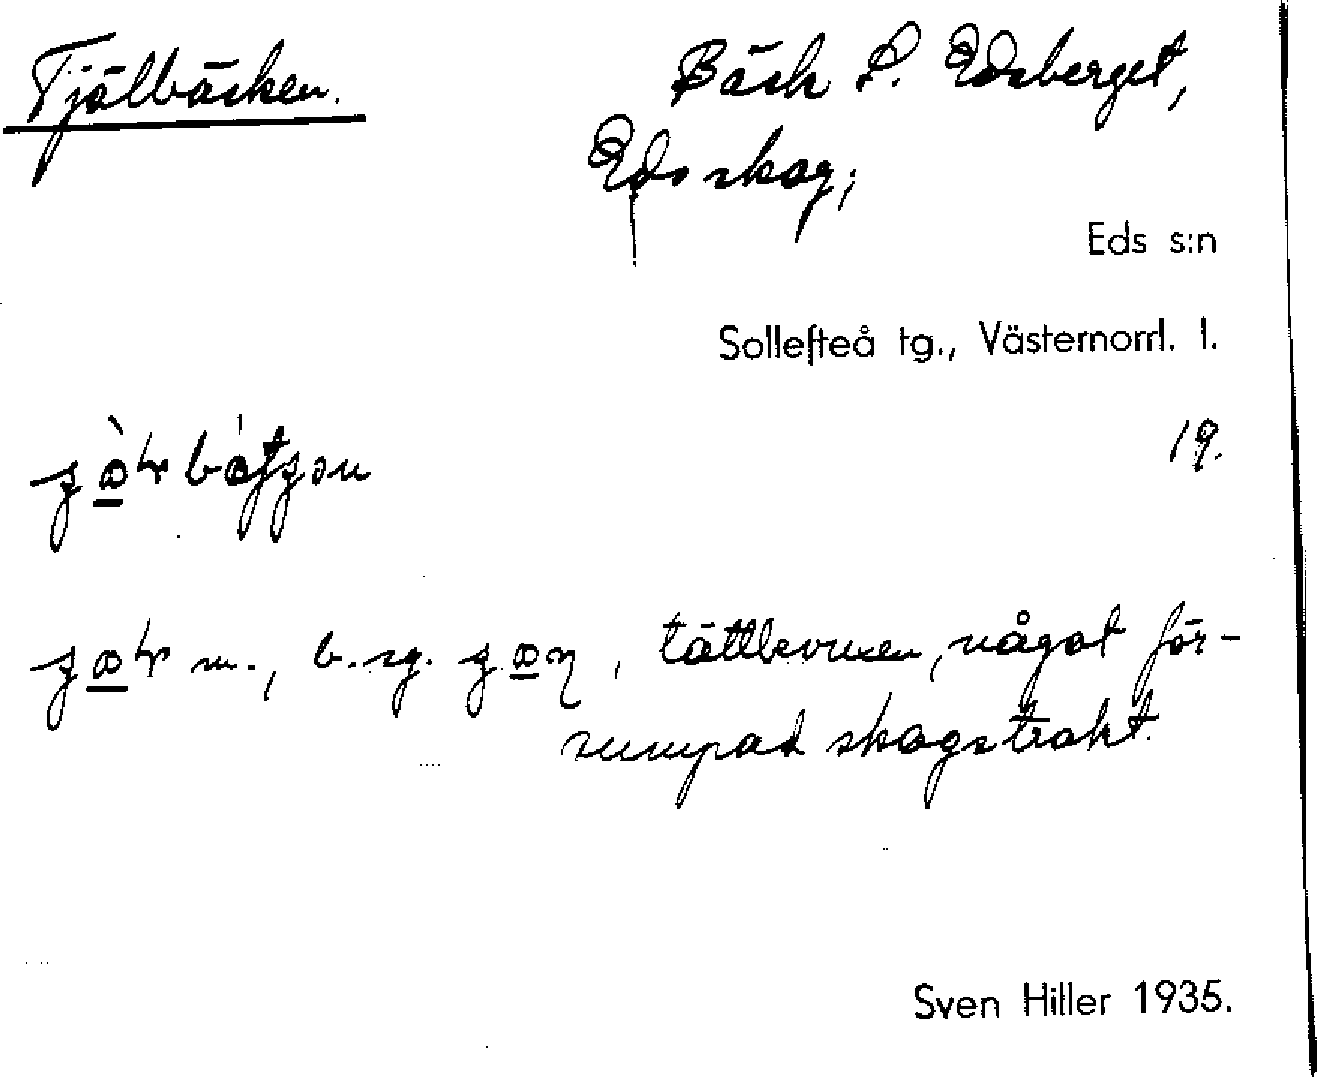 Tjälbäcken.
Bäck S. Edsberget,
Eds skog;
Eds s:n
Sollefteå tg., Västernorrl. l.
19.
m., b. sg. , tättbevuxen, något för-
sumpad skogstrakt.
Sven Hiller 1935.